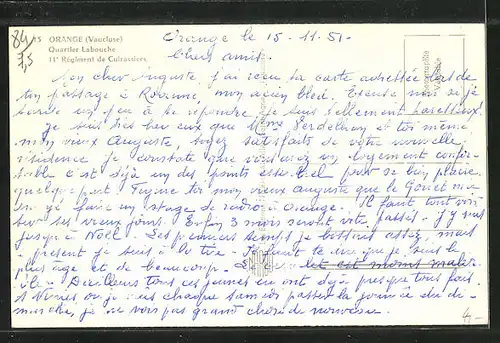 84
5,5
15 ORANGE (Vaucluse)
Quartier Labouche
11e Régiment de Cuirassiers
Orange le 15-11-51-
Chers amis.
Mon cher Auguste, j'ai reçu ta carte adressée lors de
ton passage à Roanne, mon vieux. Excuse moi si je
un peu à te répondre, je suis tellement paresseux.
Je suis très heureux que Mme Verdelhan et toi même
mon vieux Auguste, soyez satisfaits de votre nouvelle
résidence je constate que vous avez un logement confor-
table c'est déjà un des points essentiel pour se bien plaire
quelque part. Figure toi mon vieux auguste que le
faire un stage de radio à Orange. Il faut tout voir
sur ses vieux jours. Enfin 3 mois seront vite passés. J'y suis
jusqu'à Noël. Les premiers temps je assez, mais
à présent je suis à la Il faut te dire que je suis le
plus agé et de beaucoup. est moins
D'ailleurs tous ces jeunes en ont déjà presque tous fait.
A Nimes ou je vais chaque samedi passer la journée du di-
manche, je ne vois pas grand chose de nouveau.
4-